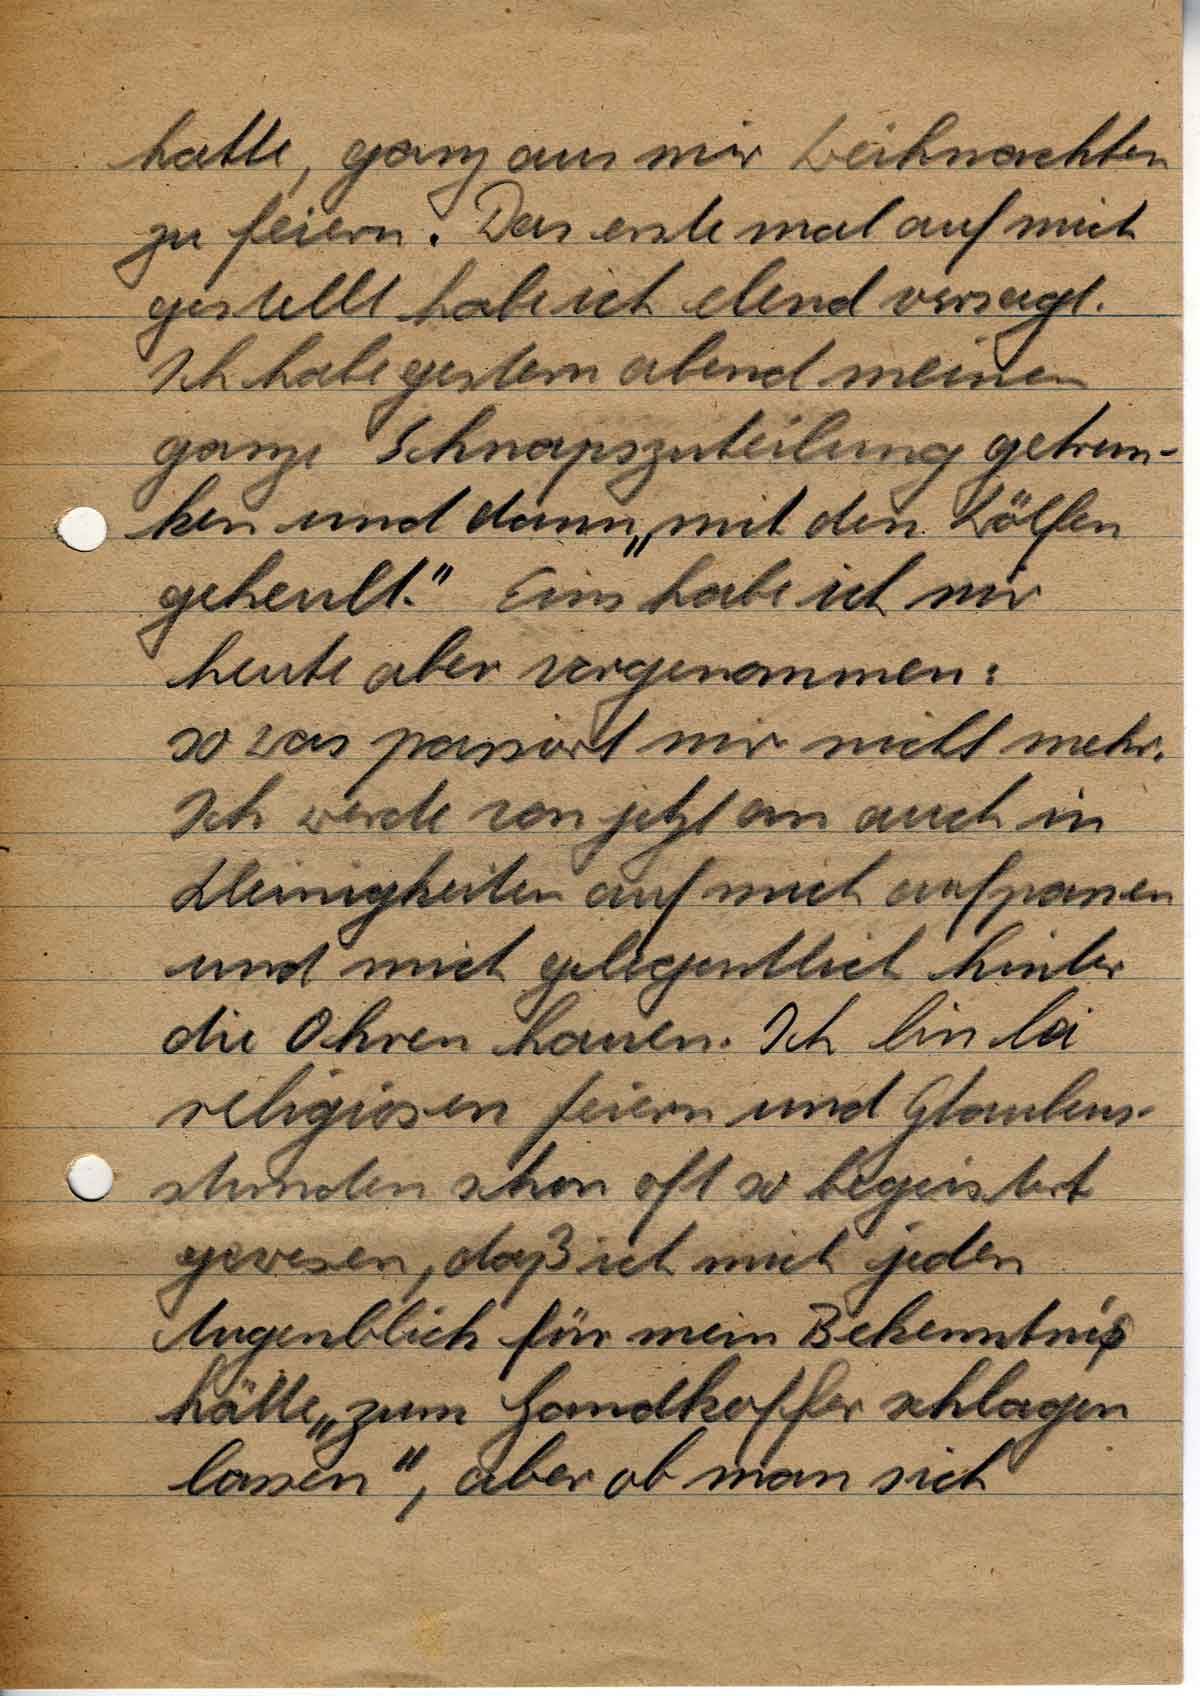 hatte, ganz aus mir Weihnachten
zu feiern. Das erste mal auf mich
gestellt habe ich elend versagt.
Ich habe gestern abend meinen
ganze Schnapszuteilung getrun-
ken und dann „mit den Wölfen
geheult." Eins habe ich mir
heute aber vorgenommen:
so was passiert mir nicht mehr.
Ich werde von jetzt an auch in
Kleinigkeiten auf mich aufpassen
und mich gelegentlich hinter
die Ohren hauen. Ich bin bei
religiosen feiern und Glaubens-
stunden schon oft so begeistert
gewesen, daß ich mich jeden
Augenblick für mein Bekenntnis
hätte „zum Handkoffer schlagen
lassen", aber ob man sich